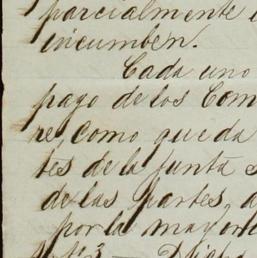 parcialmente
incumben.
Cada uno
pago de los Com
re, como queda
tes de la junta s
de las partes, a
por la mayor